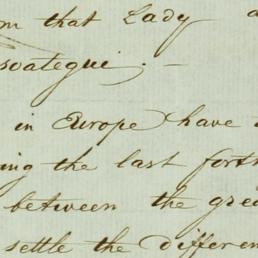 m that Lady a
soategui. —
in Europe have
ing the last fort
between the grea
settle the differen